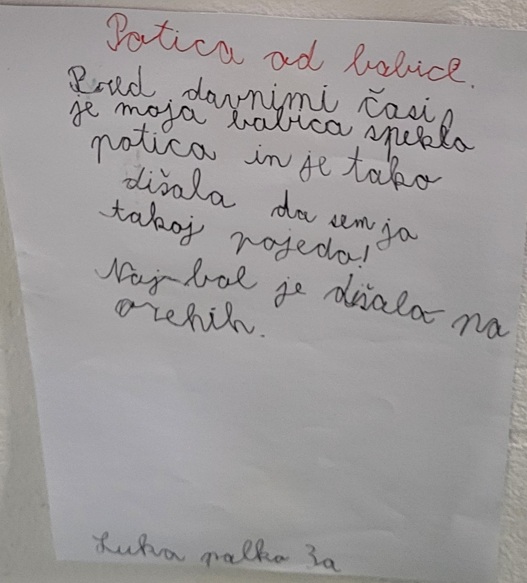 Potica od babice.
Pred davnimi časi
je moja babica spekla
potica in je tako
dišala da sem ja
takoj pojeda!
Naj-bol je dišala na
orehih.
palka 3a